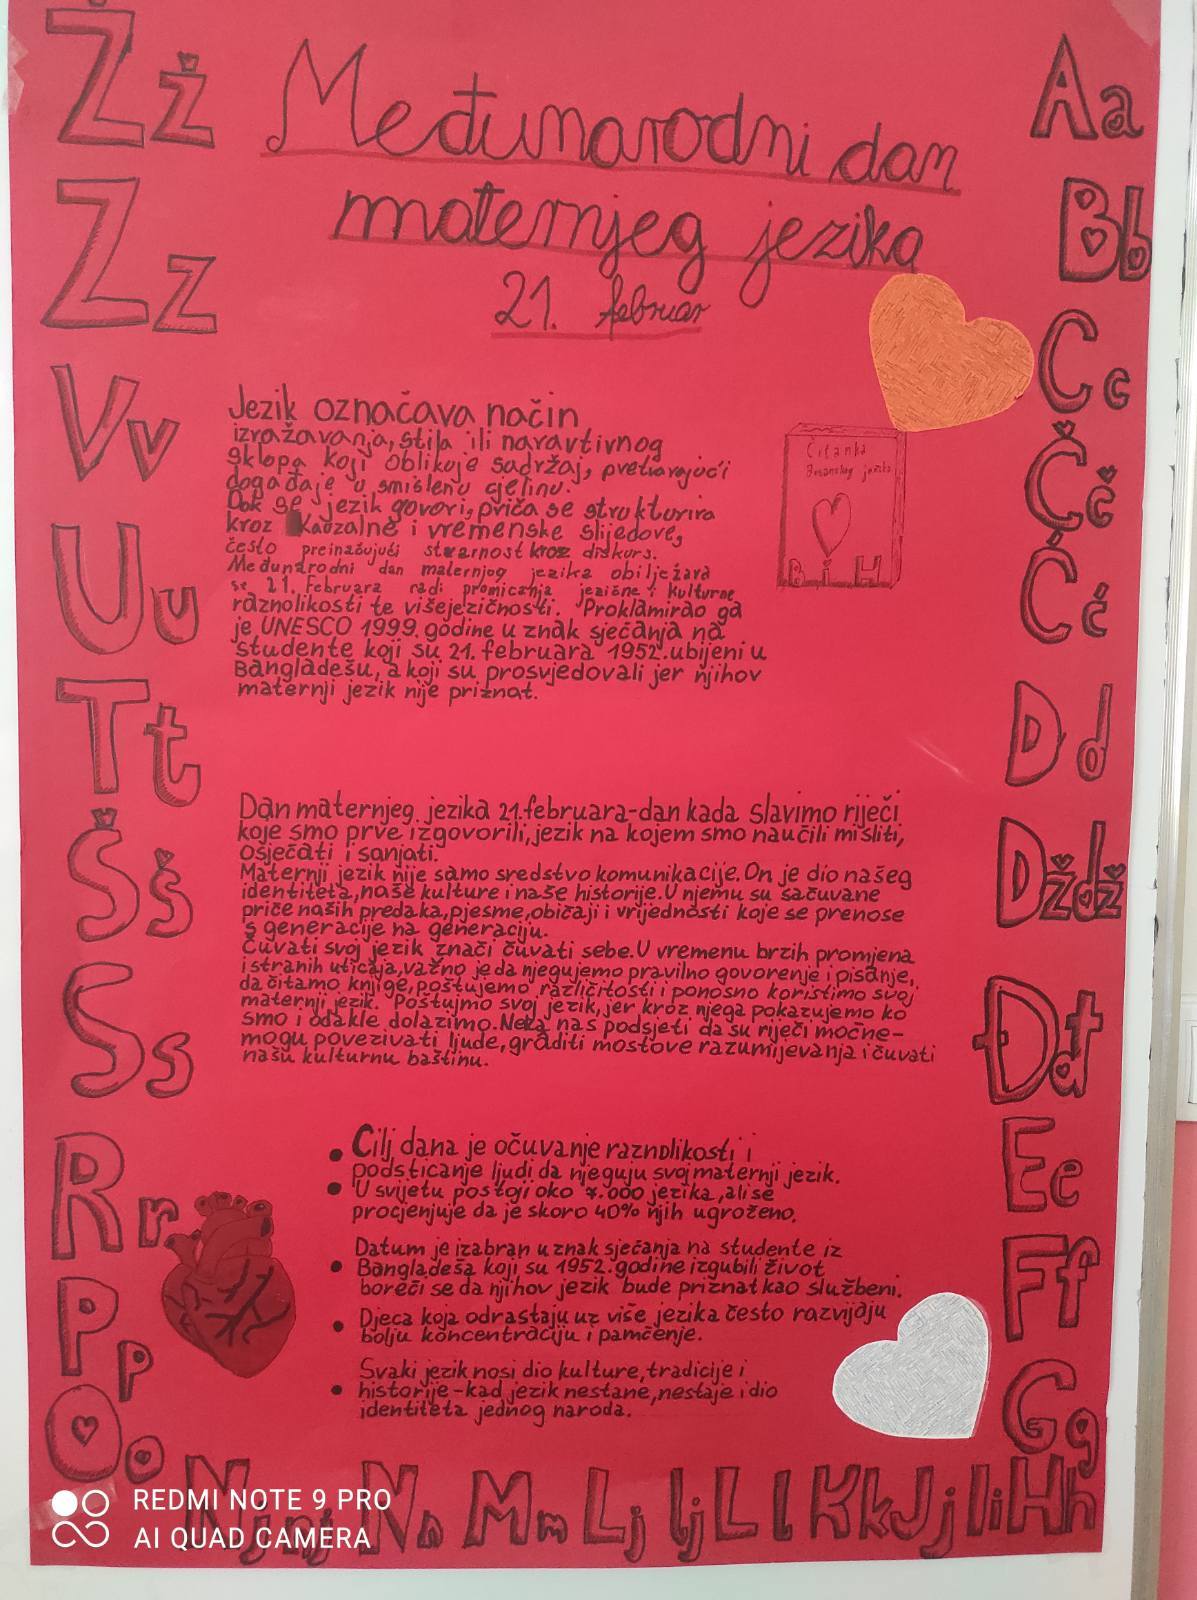 Međunarodni dan
maternjeg jezika
21. februar
Jezik označava način
izražavanja, stila ili naravtivnog
sklopa koji oblikuje sadržaj, pretvarajući
događaje u smislenu cjelinu.
Dok se jezik govori, priča se strukturira
kroz kauzalne i vremenske slijedove,
često preinačujući stvarnost kroz diskurs.
Međunarodni dan maternjog jezika obilježava
se 21. Februara radi promicanja jezične i kulturne
raznolikosti te višejezičnosti. Proklamirao ga
je UNESCO 1999. godine u znak sjećanja na
studente koji su 21. februara 1952. ubijeni u
Bangladešu, a koji su prosvjedovali jer njihov
maternji jezik nije priznat.
Čitanka
Bosanskog jezika
B i H
Dan maternjeg jezika 21.februara-dan kada slavimo riječi
koje smo prve izgovorili, jezik na kojem smo naučili misliti,
osjećati i sanjati.
Maternji jezik nije samo sredstvo komunikacije. On je dio našeg
identiteta, naše kulture i naše historije. U njemu su sačuvane
priče naših predaka, pjesme, običaji i vrijednosti koje se prenose
s generacije na generaciju.
Čuvati svoj jezik znači čuvati sebe. U vremenu brzih promjena
i stranih uticaja, važno je da njegujemo pravilno govorenje i pisanje,
da čitamo knjige, poštujemo različitosti i ponosno koristimo svoj
maternji jezik. Poštujmo svoj jezik, jer kroz njega pokazujemo ko
smo i odakle dolazimo. Neka nas podsjeti da su riječi moćne-
mogu povezivati ljude, graditi mostove razumijevanja i čuvati
našu kulturnu baštinu.
• Cilj dana je očuvanje raznolikosti i
podsticanje ljudi da njeguju svoj maternji jezik.
• U svijetu postoji oko 7.000 jezika, ali se
procjenjuje da je skoro 40% njih ugroženo.
Datum je izabran u znak sjećanja na studente iz
• Bangladeša koji su 1952. godine izgubili život
boreći se da njihov jezik bude priznat kao službeni.
• Djeca koja odrastaju uz više jezika često razvijaju
bolju koncentraciju i pamćenje.
Svaki jezik nosi dio kulture, tradicije i
• historije - kad jezik nestane, nestaje i dio
identiteta jednog naroda.
Aa
Bb
Cc
Čč
Ćć
Dd
Dždž
Đđ
Ee
Ff
Gg
Hh
Ii
Jj
Kk
Ll
Lj lj
Mm
Nn
Nj nj
Oo
Pp
Rr
Ss
Šš
Tt
Uu
Vv
Zz
Žž
REDMI NOTE 9 PRO
AI QUAD CAMERA